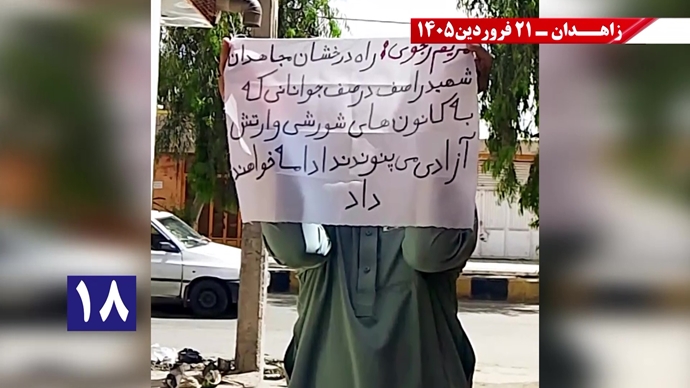 زاهدان - ۲۱ فروردین ۱۴۰۵
مریم رجوی: راه درخشان مجاهدان
شهید را صف در صف جوانانی که
به کانون های شورشی و ارتش
آزادی می پیوندند ادامه خواهند
داد
۱۸